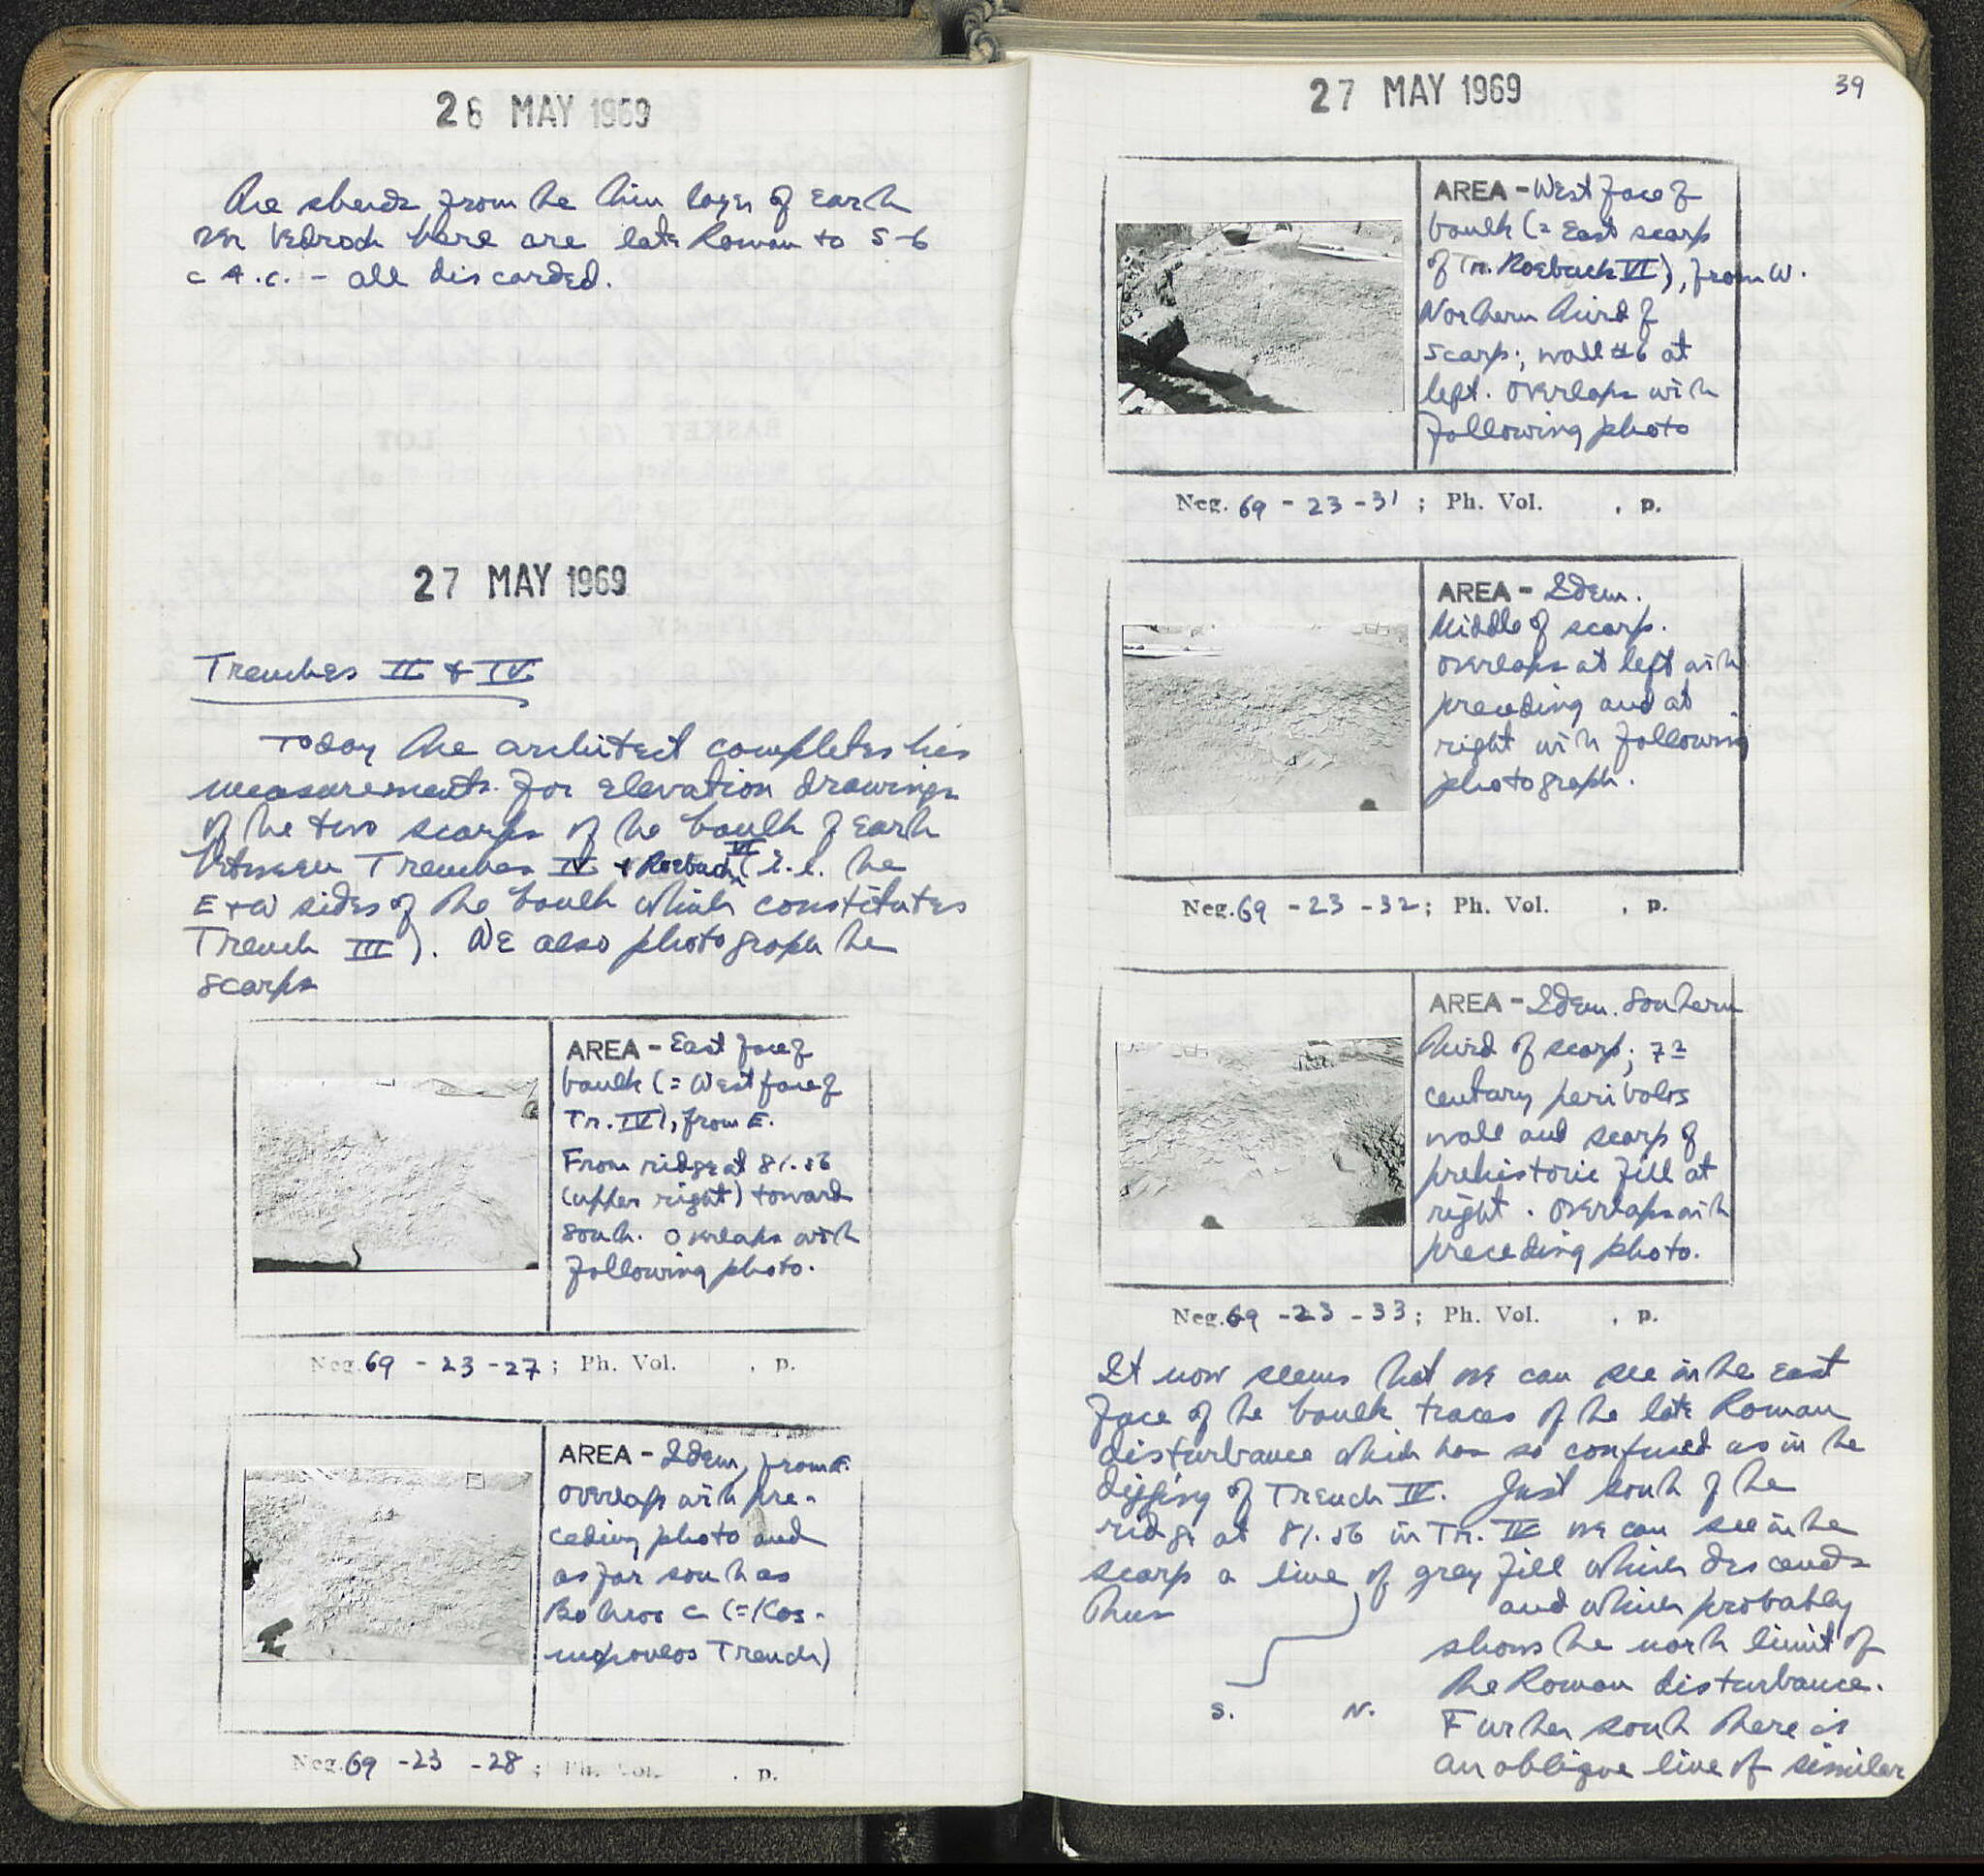 26 MAY 1969
The sherds from the thin layer of earth
over bedrock here are late Roman to 5-6
c A.C. - all discarded.
27 MAY 1969
Trenches II & IV
Today the architect completes his
measurements for elevation drawings
of the two scarps of the baulk of earth
between Trenches IV + Roebuck VI (i.e. the
E + W sides of the baulk which constitutes
Trench III). We also photograph the
scarps
AREA - East face of
baulk (= West face of
Tr. IV), from E.
From ridge at 81.56
(upper right) toward
south. Overlaps with
following photo.
Neg. 69 - 23 - 27; Ph. Vol. , p.
AREA - Idem, from E.
Overlaps with pre-
ceding photo and
as far south as
Bothros C (= Kos-
mopoulos Trench)
Neg. 69 - 23 - 28; Ph. Vol. , p.
27 MAY 1969
39
AREA - West face of
baulk (= East scarp
of Tr. Roebuck VI), from W.
Northern third of
scarp; wall #6 at
left. Overlaps with
following photo
Neg. 69 - 23 - 31; Ph. Vol. , p.
AREA - Idem.
Middle of scarp.
Overlaps at left with
preceding and at
right with following
photograph.
Neg. 69 - 23 - 32; Ph. Vol. , p.
AREA - Idem. Southern
third of scarp; 7th
century perivolos
wall and scarp of
prehistoric fill at
right. Overlaps with
preceding photo.
Neg. 69 - 23 - 33; Ph. Vol. , p.
It now seems that we can see in the East
face of the baulk traces of the late Roman
disturbance which has so confused us in the
digging of Trench IV. Just south of the
ridge at 81.56 in Tr. IV we can see in the
scarp a line of grey fill which descends
thus and which probably
shows the north limit of
the Roman disturbance.
S. N.
Further south there is
an oblique line of similar